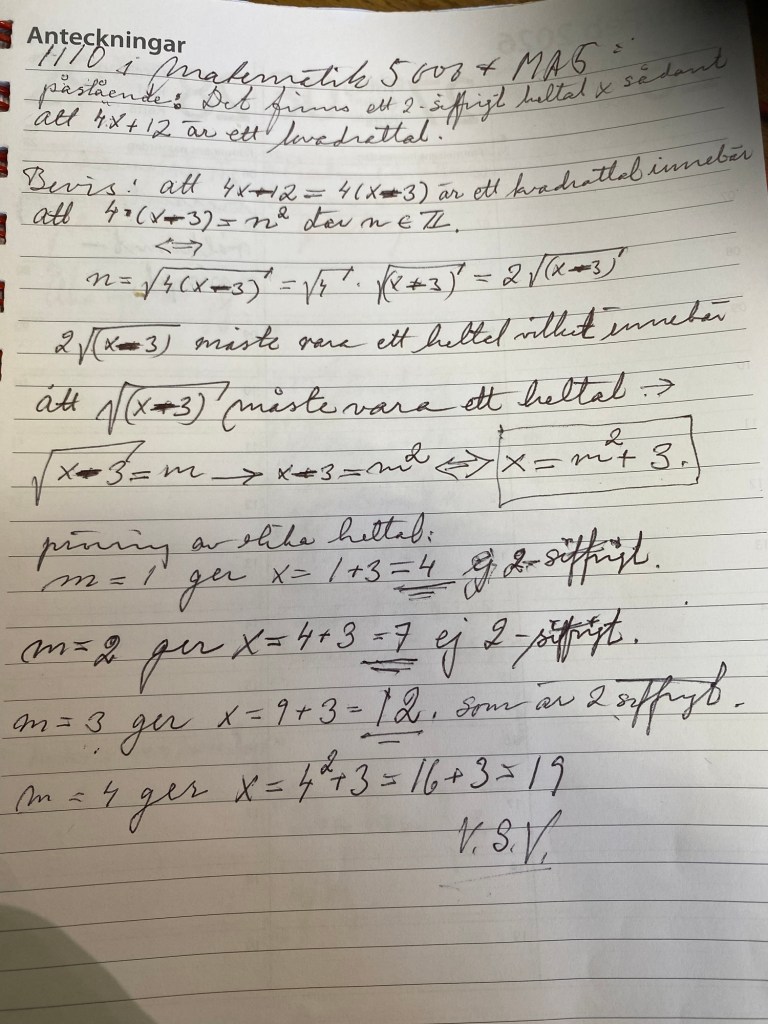 Anteckningar
1110 i matematik 5000 + MA5:
påstående: Det finns ett 2-siffrigt heltal x sådant
att 4x+12 är ett kvadrattal.
Bevis: att 4x-12 = 4(x-3) är ett kvadrattal innebär
att 4·(x-3) = n² där n ∈ ℤ.
⟺
n = √4(x-3) = √4 · √(x-3) = 2√(x-3)
2√(x-3) måste vara ett heltal vilket innebär
att √(x-3) måste vara ett heltal →
√x-3 = m → x-3 = m² ⟺ x = m² + 3.
prövning av olika heltal:
m = 1 ger x = 1+3 = 4 ej 2-siffrigt.
m = 2 ger x = 4+3 = 7 ej 2-siffrigt.
m = 3 ger x = 9+3 = 12. som är 2 siffrigt.
m = 4 ger x = 4²+3 = 16+3 = 19
V.S.V.